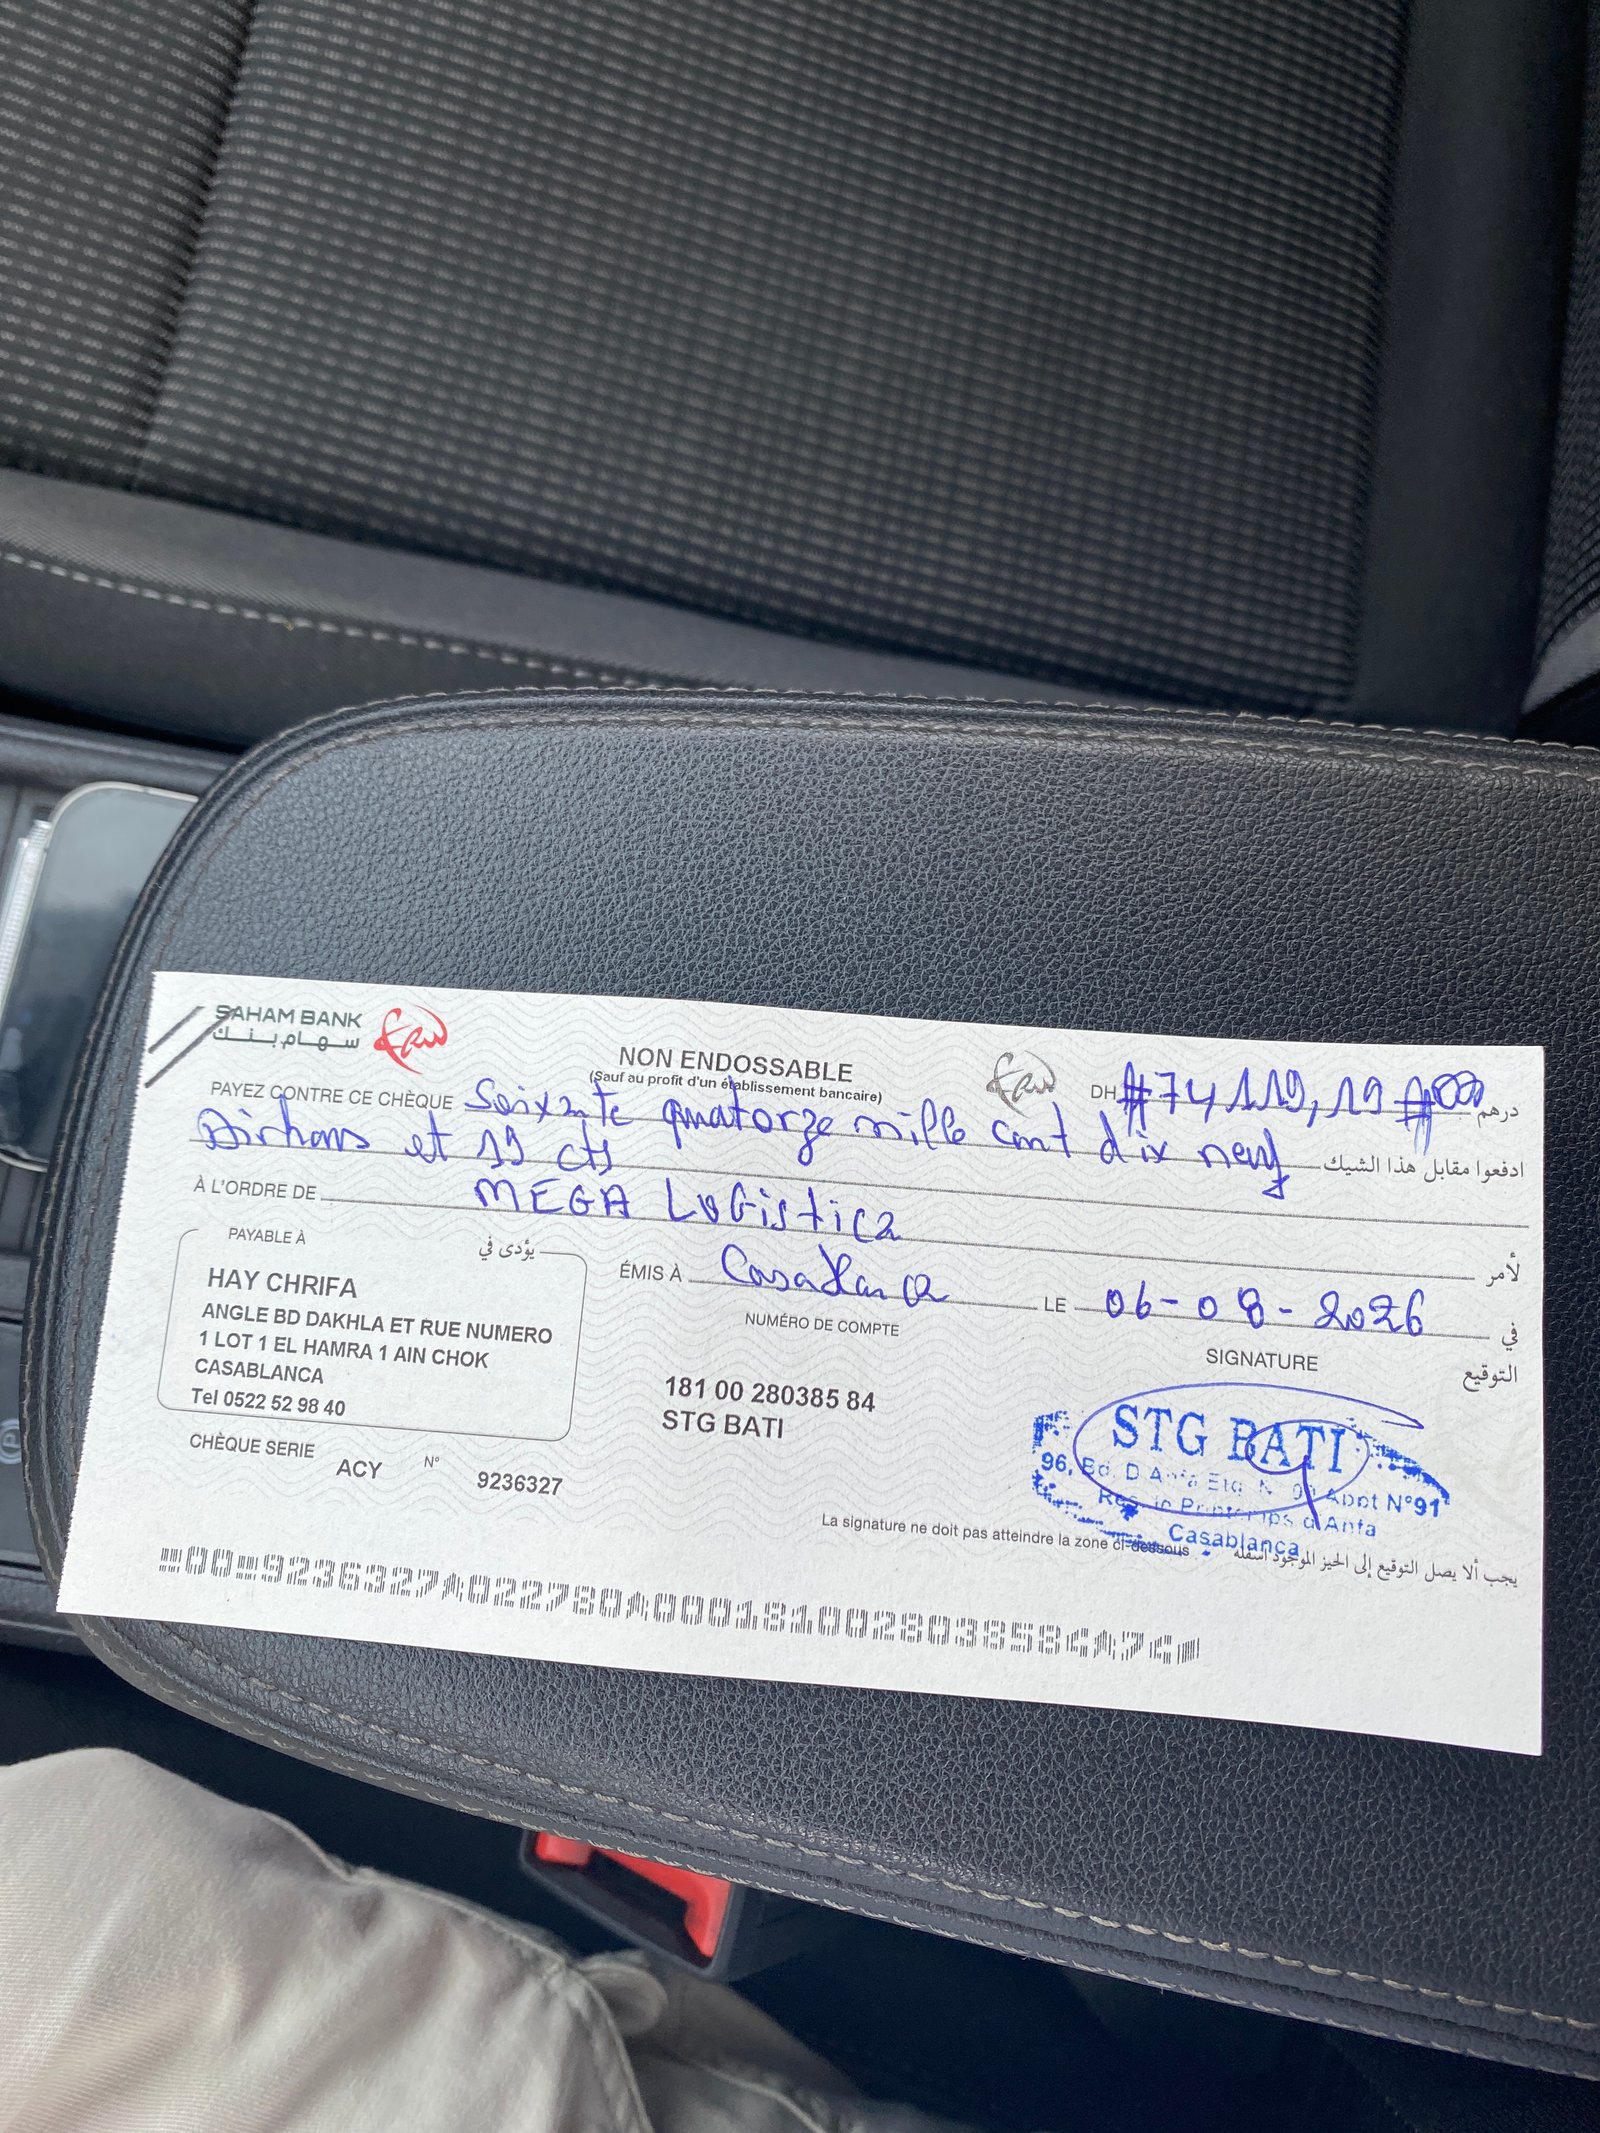 SAHAM BANK
سهام بنك
NON ENDOSSABLE
(Sauf au profit d'un établissement bancaire)
DH #74119,19# درهم
PAYEZ CONTRE CE CHÈQUE Soixante quatorze mille cent dix neuf ادفعوا مقابل هذا الشيك
Dirhams et 19 cts
À L'ORDRE DE MEGA Logistica لأمر
PAYABLE À يؤدى في
HAY CHRIFA
ANGLE BD DAKHLA ET RUE NUMERO
1 LOT 1 EL HAMRA 1 AIN CHOK
CASABLANCA
Tel 0522 52 98 40
ÉMIS À Casablanca LE 06-08-2026 في
NUMÉRO DE COMPTE
181 00 280385 84
STG BATI
SIGNATURE التوقيع
STG BATI
96, Bd. D Anfa Etg. N° Appt N°91
Res. le Printemps d'Anfa
Casablanca
CHÈQUE SERIE ACY N° 9236327
La signature ne doit pas atteindre la zone ci-dessous يجب ألا يصل التوقيع إلى الحيز الموجود أسفله
00 9236327 022780 0001810028038584 74